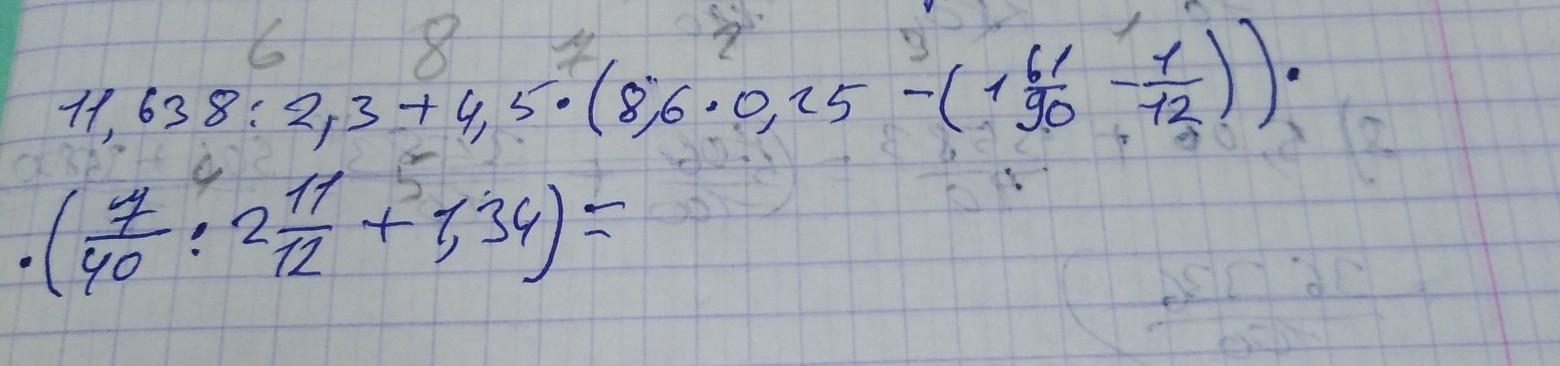 6 8 7 2 3 1
11,638 : 2,3 + 4,5 · (8,6 · 0,25 - (1 61/90 - 1/12)) ·
4 5
· (7/40 : 2 11/12 + 1,34) =